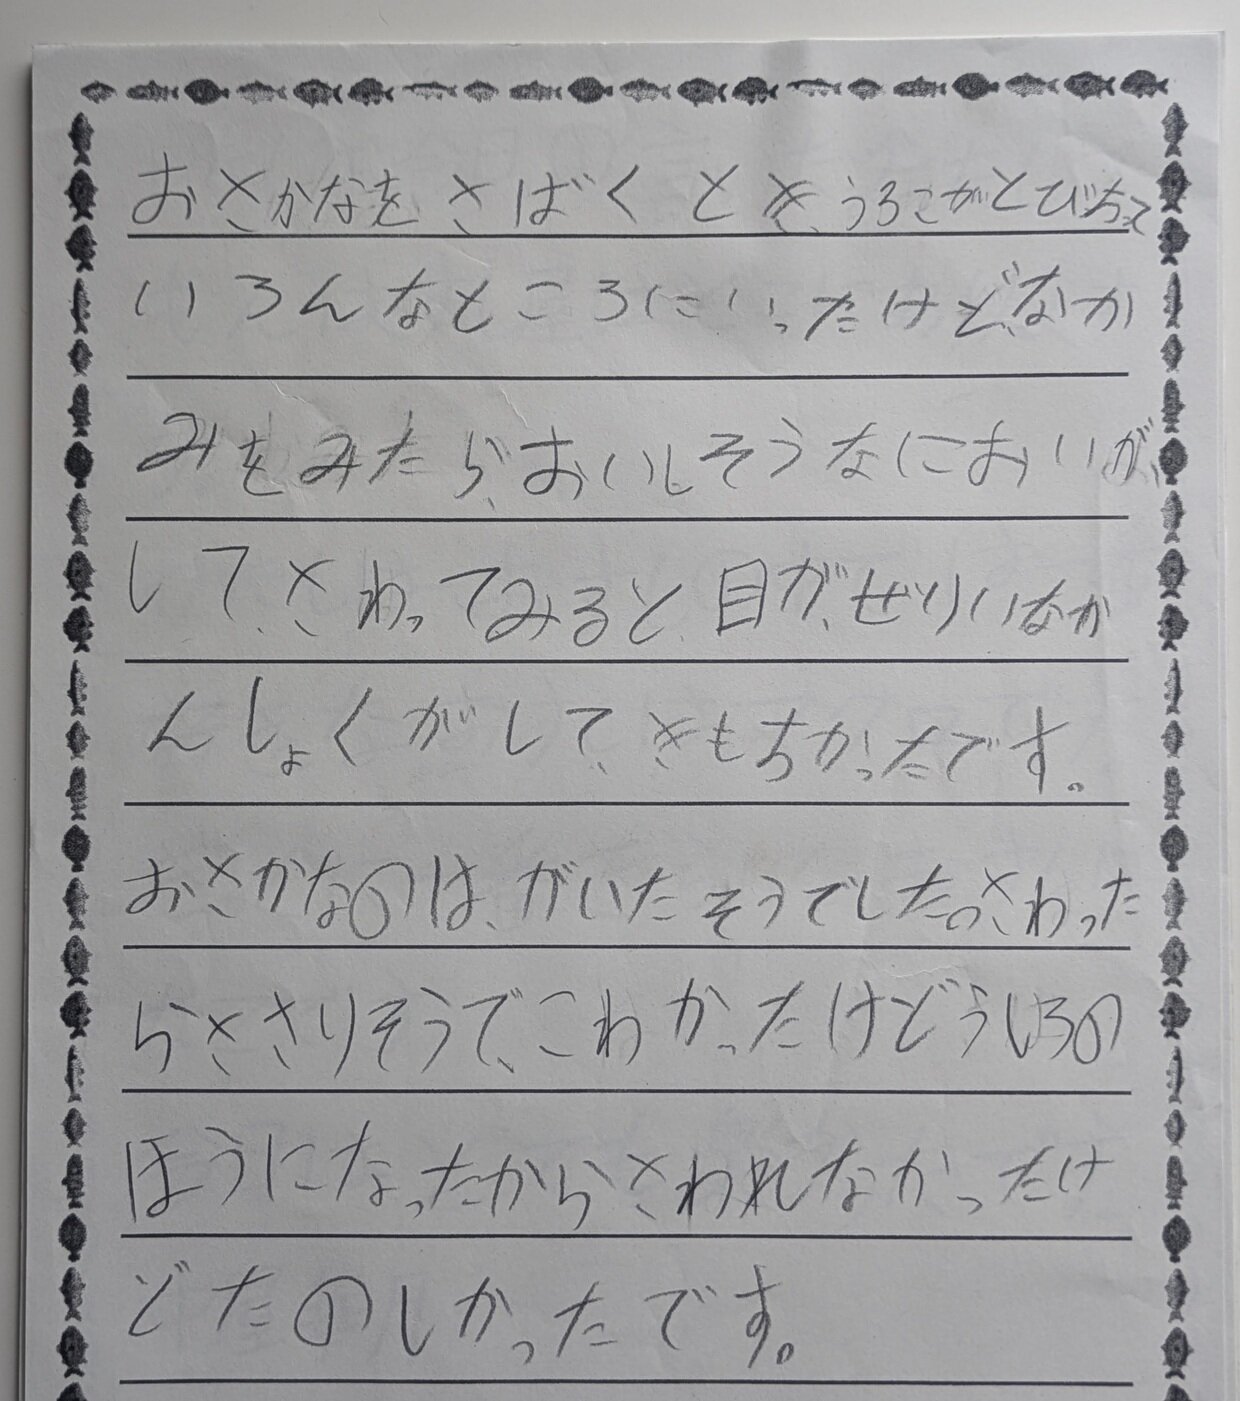 おさかなをさばくとき、うろこがとびちって
いろんなところにいったけど、なか
みをみたら、おいしそうなにおいが、
して、さわってみると、目が、ぜりいなか
んしょくがして、きもちかったです。
おさかなのは、がいたそうでした。さわった
らささりそうで、こわかったけどうしろの
ほうになったからさわれなかったけ
どたのしかったです。